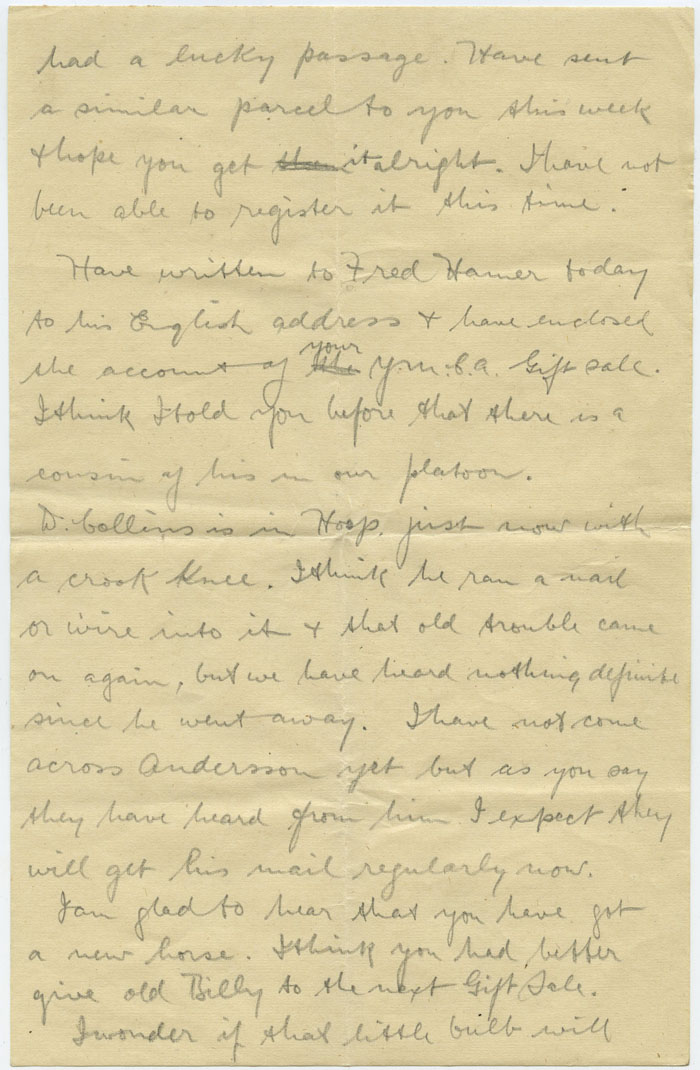 had a lucky passage. Have sent
a similar parcel to you this week
& hope you get ~~them~~ it alright. I have not
been able to register it this time.
Have written to Fred Hamer today
to his English address & have enclosed
the account of ~~the~~ your Y.M.C.A. Gift sale.
I think I told you before that there is a
cousin of his in our platoon.
D. Collins is in Hosp. just now with
a crook knee. I think he ran a nail
or wire into it & that old trouble came
on again, but we have heard nothing definite
since he went away. I have not come
across Andersson yet but as you say
they have heard from him I expect they
will get his mail regularly now.
I am glad to hear that you have got
a new horse. I think you had better
give old Billy to the next Gift Sale.
I wonder if that little bulb will